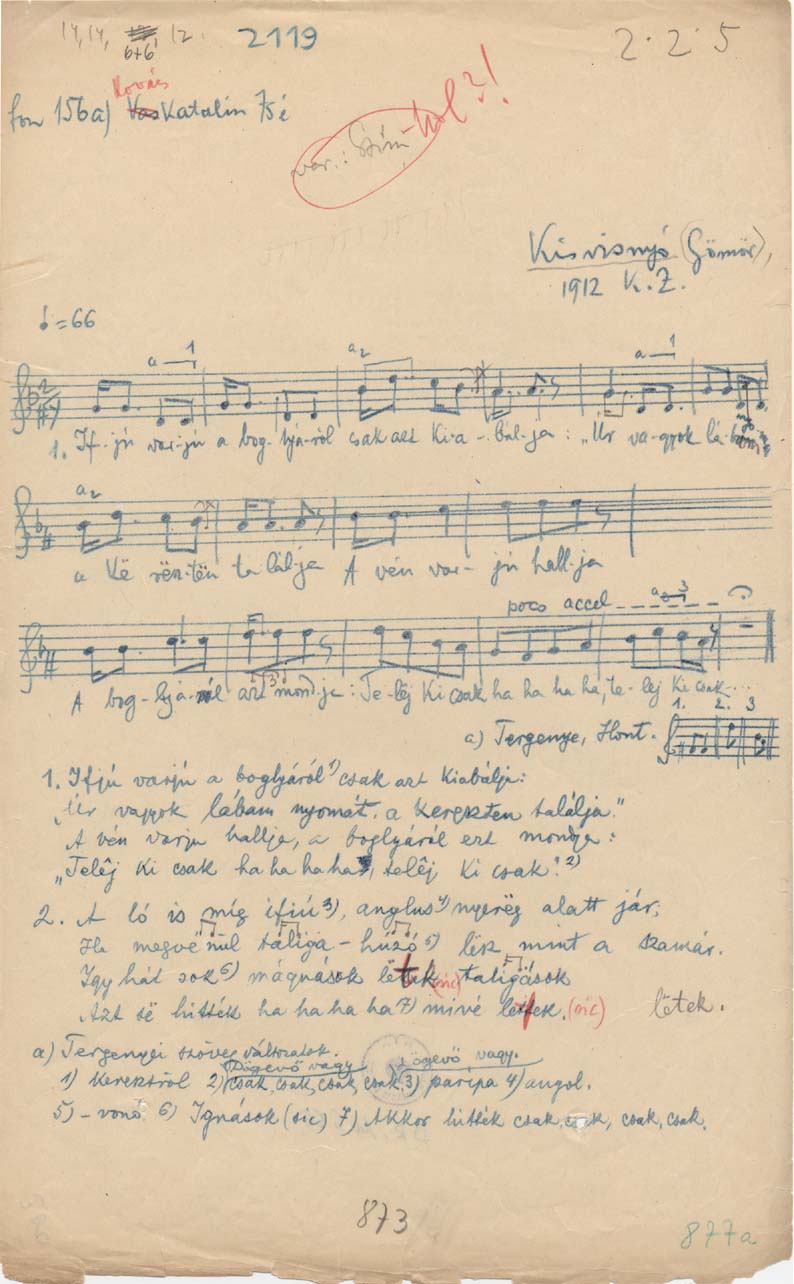 14, 14, 6+6, 12.
2119
2·2·5
fon 156a) Kovács Katalin 75é
var.: Szini hol?!
Kisvisnyó (Gömör),
1912 K.Z.
♩=66
a 1
a2
a 1
1. If-jú var-jú a bog-lyá-ról csak azt ki-a-bál-ja: „Úr va-gyok lá-bam
a2
a Kë rësz-tën ta-lál-ja A vén var-jú hall-ja
poco accel
a 3
A bog-lyá-ról azt mond-ja: Te-lëj ki csak ha ha ha ha, te-lëj ki csak...
a) Tergenye, Hont.
1. 2. 3
1. Ifjú varjú a boglyáról 1) csak azt kiabálja:
„Úr vagyok lábam nyomát a kereszten találja."
A vén varju hallja, a boglyáról ezt mondja:
„Telêj ki csak ha ha ha ha, telêj ki csak!" 2)
2. A ló is míg ifiú 3), anglus 4) nyerëg alatt jár;
Ha megvénül táliga-húzó 5) lësz mint a szamár.
Igy hát sok 6) mágnások lëtek (sic) taligások
Azt së hitték ha ha ha ha 7) mivé lettek. (sic) lëtek.
a) Tergenyei szöveg változatok.
Dögevő vagy dögevő vagy.
1) keresztről 2) csak, csak, csak, csak 3) paripa 4) angol.
5) -vonó 6) Ignások (sic) 7) Akkor hitték csak, csak, csak, csak.
873
877a